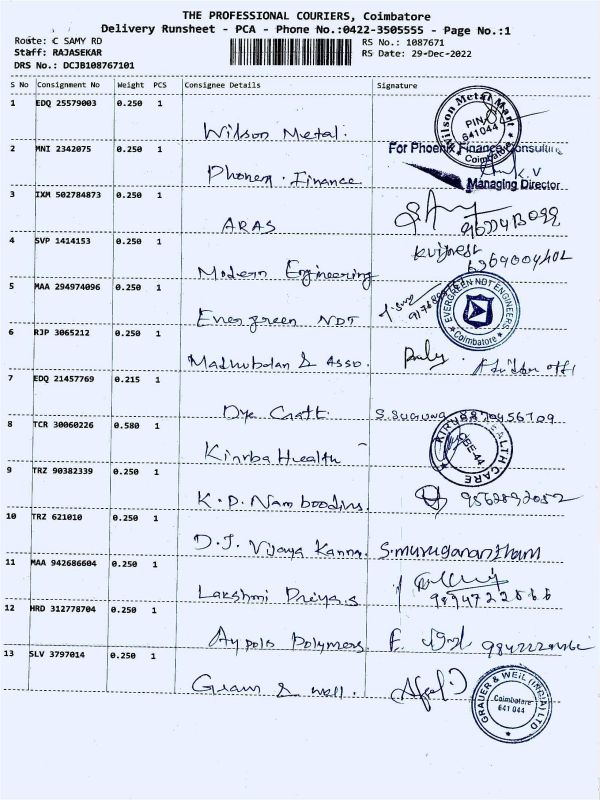 THE PROFESSIONAL COURIERS, Coimbatore
Delivery Runsheet - PCA - Phone No.:0422-3505555 - Page No.:1
Route: C SAMY RD
RS No.: 1087671
Staff: RAJASEKAR
RS Date: 29-Dec-2022
DRS No.: DCJB108767101
S No Consignment No Weight PCS Consignee Details Signature
1 EDQ 25579003 0.250 1
Wilson Metal.
Wilson Metal Mart
PIN
641044
Coimbatore
2 MNI 2342075 0.250 1
For Phoenix Finance Consulting
Finance
Managing Director
3 IXM 502784873 0.250 1
ARAS
4 SVP 1414153 0.250 1
Modern Engineering
6369004402
5 MAA 294974096 0.250 1
Evergreen NDT
EVERGREEN NDT ENGINEERS
Coimbatore
6 RJP 3065212 0.250 1
Madhubalan & Asso.
7 EDQ 21457769 0.215 1
Dye Craft.
S.SUGUNA
8 TCR 30060226 0.580 1
Health
HEALTH CARE
9 TRZ 90382339 0.250 1
K.D. Namboodiris.
10 TRZ 621010 0.250 1
D.J. Vijaya Kanna. S.muruganantham
11 MAA 942686604 0.250 1
Lakshmi Priya.s
12 HRD 312778704 0.250 1
Polymers
13 SLV 3797014 0.250 1
& well.
GRAUER & WEIL (INDIA) LTD
Coimbatore
641 044